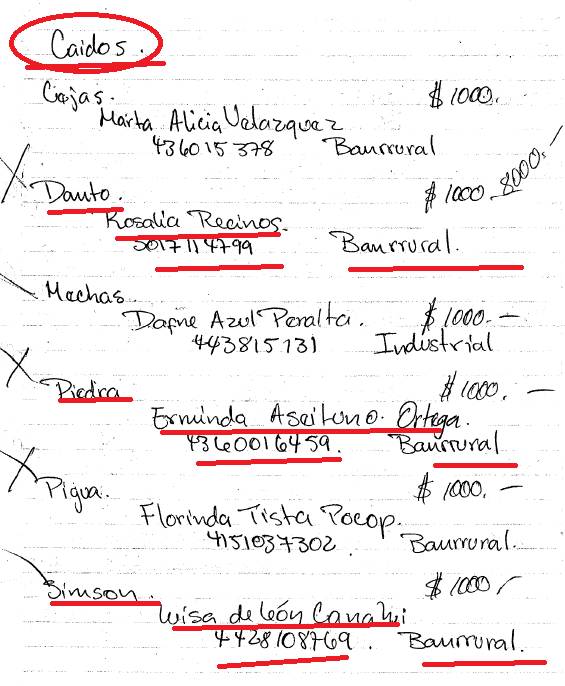 Caidos.
Cajas. $1000.
Marta Alicia Velazquez
436015378 Banrrural
Danto. $1000 8000.-
Rosalia Recinos.
3017114799 Banrrural.
Mechas. $1000.-
Dafne Azul Peralta.
443815131 Industrial
Piedra $1000.-
Erminda Aseituno Ortega.
4360016459. Banrrural
Pigua. $1000.-
Florinda Tista Pocop.
4151037302. Banrrural.
Simson. $1000
Luisa de León
4428108769. Banrrural.